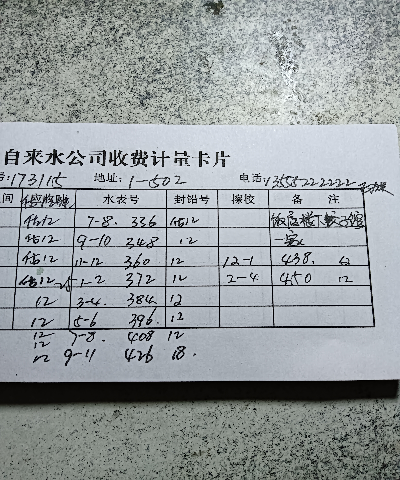 自来水公司收费计量卡片
号:173115 地址:1-502 电话:13555222222
间 水表号 封铅号 换校 备注
估12 7-8. 336 估12
估12 9-10 348 12 一家
估12 11-12 360 12 12-1 438. 12
估12 1-2 372 12 2-4 450 12
12 3-4. 384 12
12 5-6 396. 12
12 7-8. 408 12
12
12 9-11 426 18.